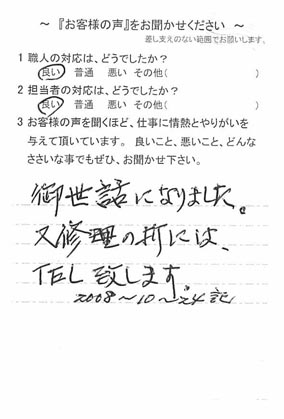 ～『お客様の声』をお聞かせください ～
差し支えのない範囲でお願いします。
1 職人の対応は、どうでしたか？
良い 普通 悪い その他( )
2 担当者の対応は、どうでしたか？
良い 普通 悪い その他( )
3 お客様の声を聞くほど、仕事に情熱とやりがいを
与えて頂いています。 良いこと、悪いこと、どんな
ささいな事でもぜひ、お聞かせ下さい。
御世話になりました。
又修理の折には、
TEL 致します。
2008～10～24 記